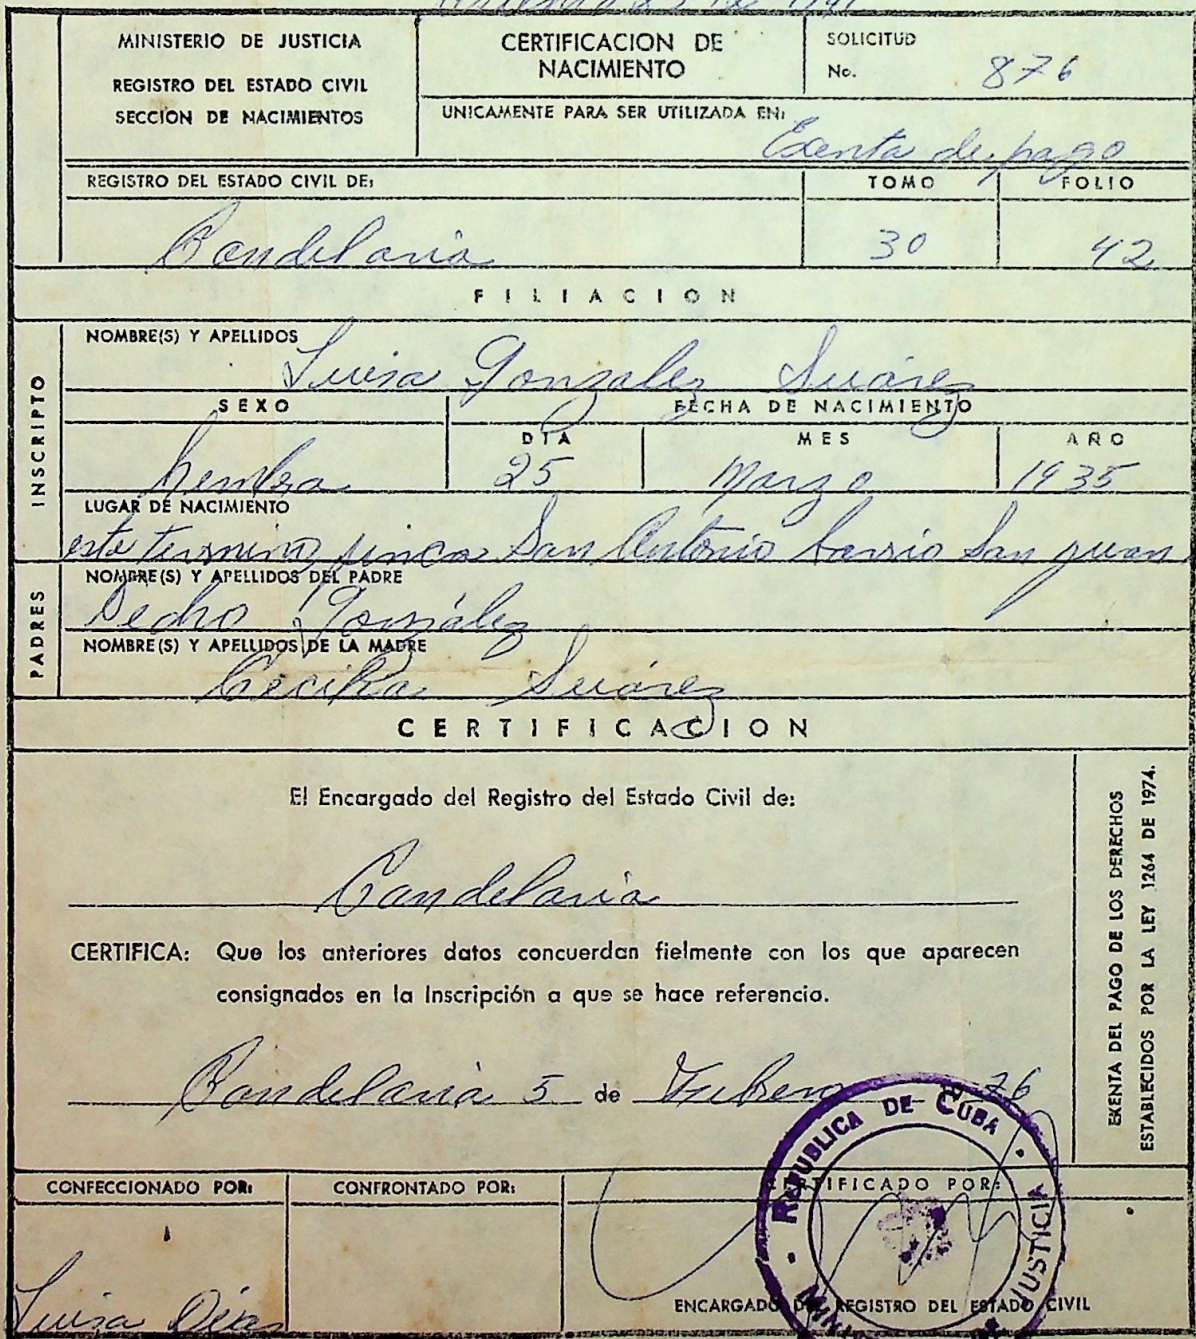 MINISTERIO DE JUSTICIA
REGISTRO DEL ESTADO CIVIL
SECCION DE NACIMIENTOS
CERTIFICACION DE
NACIMIENTO
SOLICITUD
No. 876
UNICAMENTE PARA SER UTILIZADA EN:
Exenta de pago
REGISTRO DEL ESTADO CIVIL DE:
Candelaria
TOMO
30
FOLIO
42
FILIACION
INSCRIPTO
NOMBRE(S) Y APELLIDOS
Luisa Gonzalez Suárez
SEXO
hembra
FECHA DE NACIMIENTO
DIA
25
MES
Marzo
AÑO
1935
LUGAR DE NACIMIENTO
este termino finca San Antonio barrio San Juan
PADRES
NOMBRE(S) Y APELLIDOS DEL PADRE
Pedro González
NOMBRE(S) Y APELLIDOS DE LA MADRE
Cecilia Suárez
CERTIFICACION
El Encargado del Registro del Estado Civil de:
Candelaria
CERTIFICA: Que los anteriores datos concuerdan fielmente con los que aparecen
consignados en la Inscripción a que se hace referencia.
Candelaria 5 de 76
EXENTA DEL PAGO DE LOS DERECHOS
ESTABLECIDOS POR LA LEY 1264 DE 1974.
CONFECCIONADO POR:
Luisa Díaz
CONFRONTADO POR:
CERTIFICADO POR:
REPUBLICA DE CUBA
JUSTICIA
ENCARGADO DEL REGISTRO DEL ESTADO CIVIL